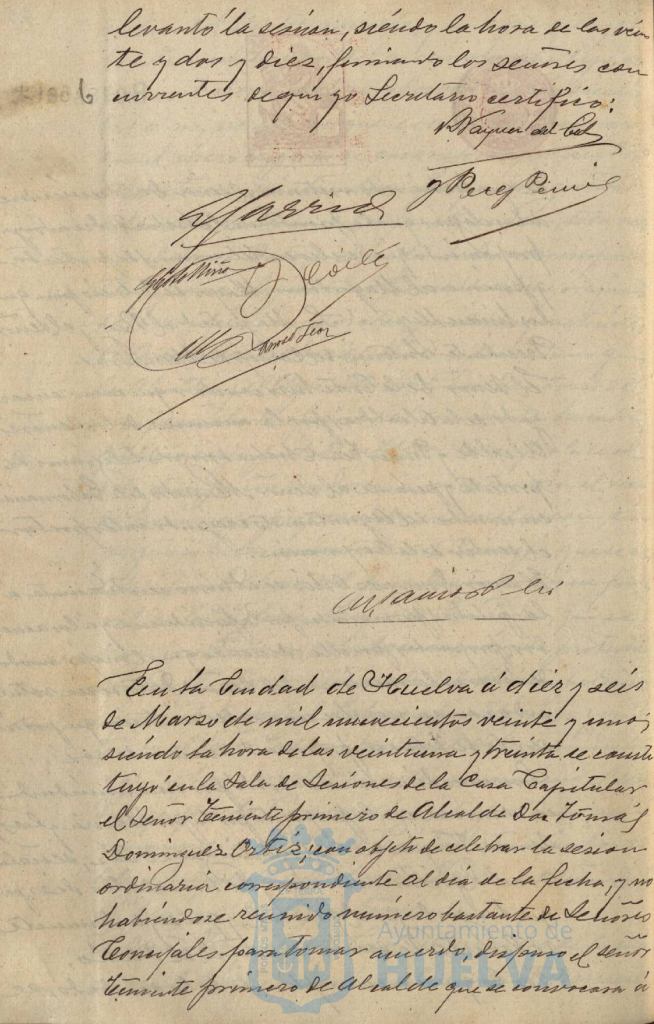 levantó la sesión, siendo la hora de las vein
te y dos y diez, firmando los señores con
currentes de que yo Secretario certifico:
Garrido
y Perez
En la Ciudad de Huelva á diez y seis
de Marzo de mil novecientos veinte y uno,
siendo la hora de las veintiuna y treinta se consti
tuyó en la Sala de Sesiones de la Casa Capitular
el señor Teniente primero de Alcalde Don Tomás
Dominguez Ortiz, con objeto de celebrar la sesion
ordinaria correspondiente al dia de la fecha, y no
habiéndose reunido número bastante de Señores
Concejales para tomar acuerdo, dispuso el señor
Teniente primero de Alcalde que se convocara á
Ayuntamiento de
HUELVA